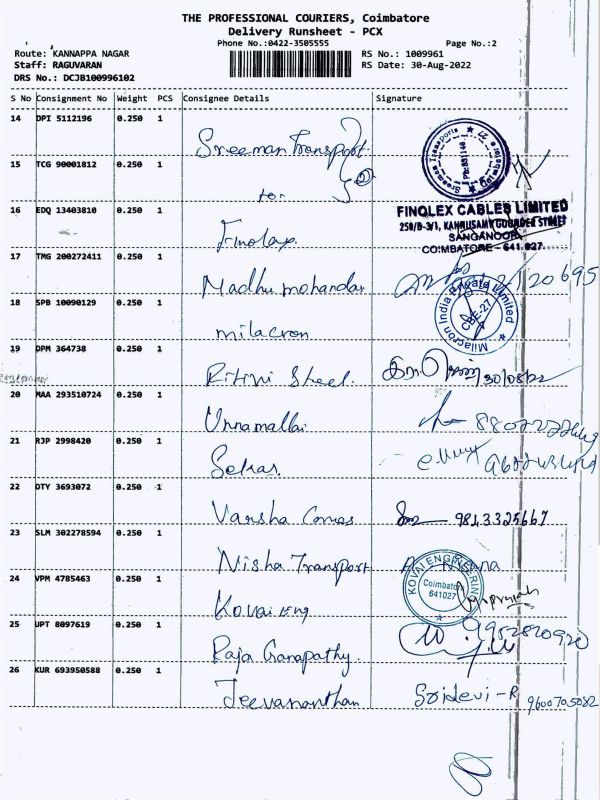 THE PROFESSIONAL COURIERS, Coimbatore
Delivery Runsheet - PCX
Phone No.:0422-3505555 Page No.:2
Route: KANNAPPA NAGAR RS No.: 1009961
Staff: RAGUVARAN RS Date: 30-Aug-2022
DRS No.: DCJB100996102
S No Consignment No Weight PCS Consignee Details Signature
14 DPI 5112196 0.250 1 Sreeman Transport
15 TCG 90001812 0.250 1
16 EDQ 13403810 0.250 1 Finolax
FINOLEX CABLES LIMITED
250/D-3/1, KANNUSAMY GOUNDER STREET
SANGANOOR
COIMBATORE - 641 027
17 TMG 200272411 0.250 1 Madhu mohandar
18 SPB 10090129 0.250 1 milacron
Milacron India Private Limited
CBE-27
19 DPM 364738 0.250 1 Ritini Steel 30/08/22
20 MAA 293510724 0.250 1 Unnamallai
21 RJP 2998420 0.250 1 Sekar
22 OTY 3693072 0.250 1 Varsha 9843325667
23 SLM 302278594 0.250 1 Nisha Transport
24 VPM 4785463 0.250 1 Kovai Eng
KOVAI ENGINEERING
Coimbatore
641027
25 UPT 8097619 0.250 1 Raja Ganapathy 9952820920
26 KUR 693950588 0.250 1 Jeevananthan Sridevi-R 9600705082